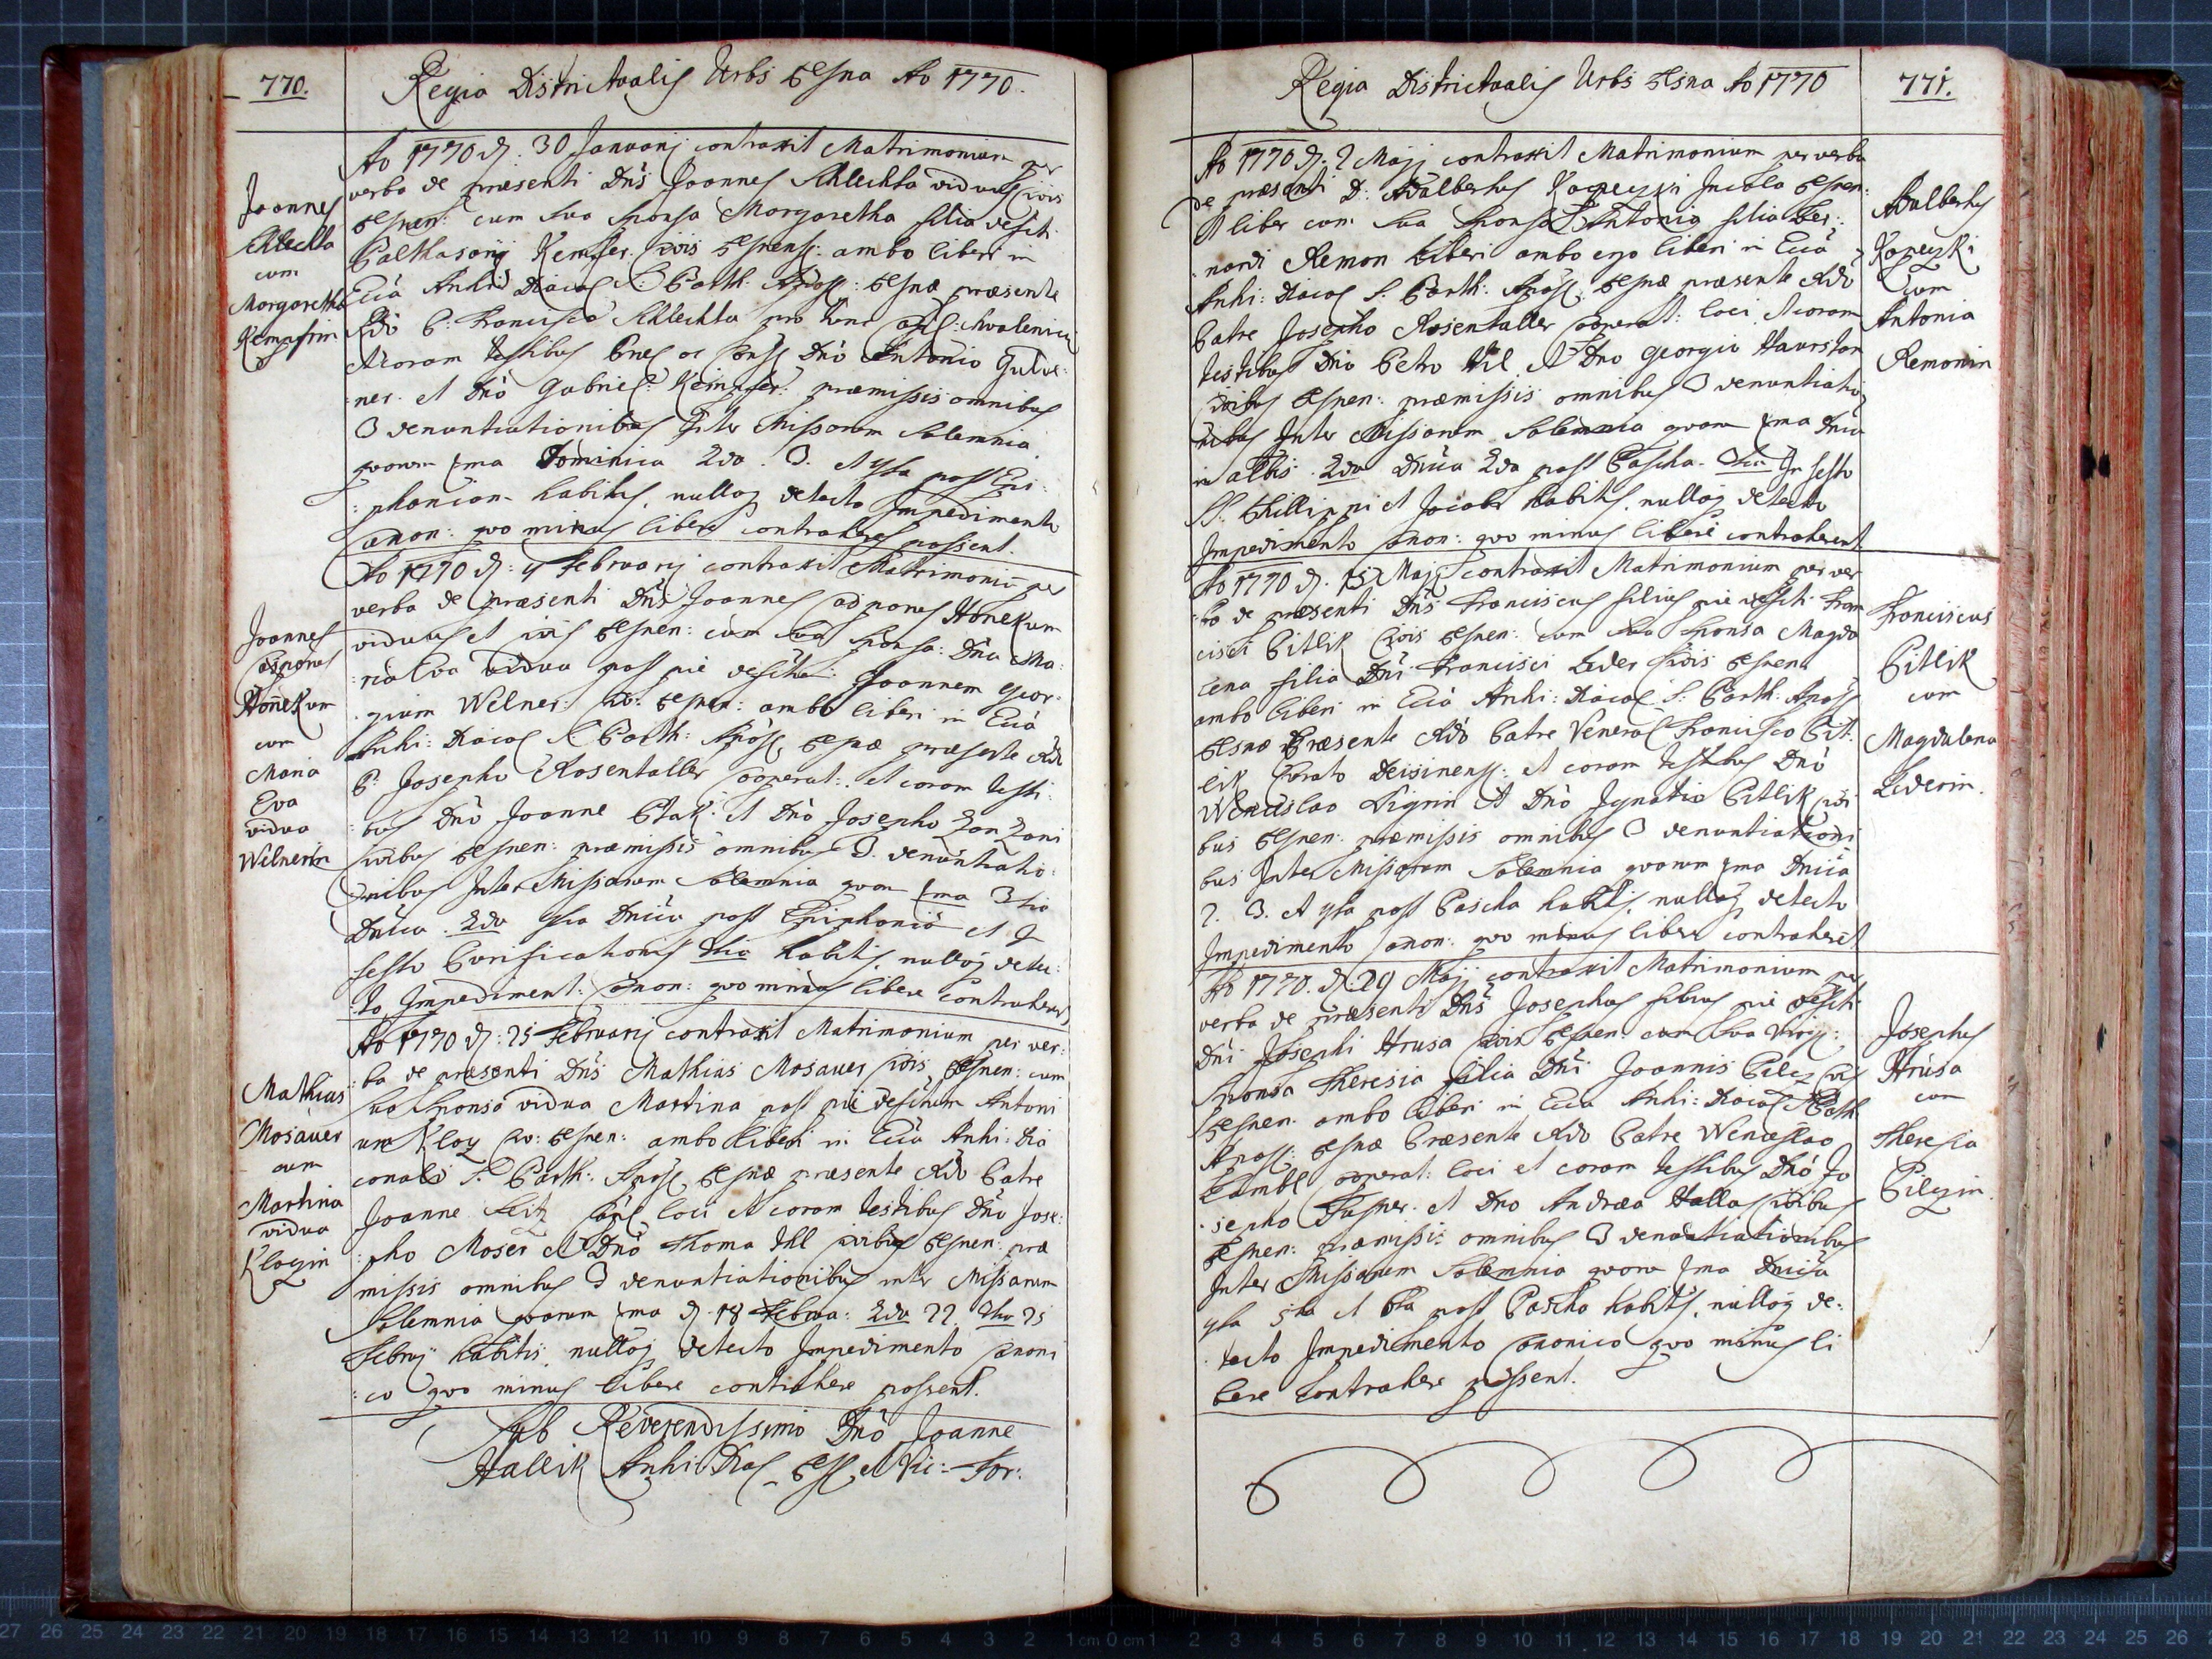 770.
Regia Districtualis Urbs Belsna Ao 1770.
Joannes
Schlechta
cum
Margaretha
Kempfrin
Ao 1770 d. 30 Januarij contraxit Matrimonium per
verba de praesenti Dns Joannes Schlechta viduus civis
cum sua sponsa Margaretha filia defcti
Balthasarij Kempfer civis ambo liberi in
Ecia Archi Diacol S. Barth: Apost: praesente
Rdo P. Francisco Schlechta pro tunc
et coram testibus Dno Antonio
ner. et Dno Gabriel: Kempfer: praemissis omnibus
3 denuntiationibus Inter Missarum Solemnia
quarum 1ma Dominica 2da. 3. et 4ta post Epi:
:phaniam habitis, nulloq detecto Impedimento
Canon: quo minus libere contrahere possent.
Joannes
Casparus
Honekum
cum
Maria
Eva
vidua
Welnerin
Ao 1770 d: 4 Februarij contraxit Matrimoniu per
verba de praesenti Dns Joannes Casparus Honekum
viduus et civis cum sua sponsa: Dna Ma:
:ria Eva vidua post pie defctu: Joannem Geor:
:gium Welner: civ: ambo liberi in Ecia
Archi: Diacol S. Barth: Apost, praesente Rdo
P. Josepho Rosentaller Cooperat: et coram testi:
:bus Dno Joanne Ptak: et Dno Josepho Zanzani
civibus praemissis omnibus 3. denuntiatio:
:nibus Inter Missarum Solemnia quaru 1ma 3tia
Dnica. 2da 4ta Dnica post Epiphania et In
festo Purificationis 3tia habitis, nulloq detec:
:to Impediment: Canon: quo minus libere contraherent
Mathias
Mosauer
cum
Martina
vidua
Klozin
Ao 1770 d: 25 Februarij contraxit Matrimonium per ver:
:ba de praesenti Dns Mathias Mosauer civis cum
sua sponsa vidua Martina post pie defctum Antoni
um Kloz civ: ambo liberi in Ecia Archi: Dia
conali S. Barth: Apost, praesente Rdo Patre
Joanne Seitz Capl loci et coram testibus Dno Jose:
:pho Moser et Dno Thoma Ihl civibus prae
missis omnibus 3 denuntiationibus inter Missarum
Solemnia quarum 1ma d. 18 Februa: 2da 22. 3tia 25
Februj habitis nulloq detecto Impedimento Canoni
:co quo minus libere contrahere possent.
Sub Reverendissimo Dno Joanne
Hallik Archi Diac et Vic: For:
Regia Districtualis Urbs Belsna Ao 1770
771.
Ao 1770 d. 2 Maji contraxit Matrimonium per verba
de praesenti D: Adalbertus Kopeczki Incola
et liber cum sua sponsa Antonia filia Ber:
:nardi Remon liberi ambo ergo liberi in Ecia
Archi: Diacol S. Barth: Apost: praesente Rdo
Patre Josepho Rosentaller Cooperat: loci et coram
testibus Dno Petro Hil et Dno Georgio
civibus praemissis omnibus 3 denuntiatio
nibus Inter Missarum Solemnia quaru 1ma Dnica
in albis 2da Dnica 2da post Pascha. 3tia In festo
S. Phillippi et Jacobi habitis, nulloq detecto
Impedimento Canon: quo minus libere contraherent
Adalbertus
Kopeczki
cum
Antonia
Remonin
Ao 1770 d. 15 Maji contraxit Matrimonium per ver
:ba de praesenti Dns Franciscus filius pie defcti Fran
cisci Pitlik civis cum sua sponsa Magda
lena filia Dni Francisci Leder civis
ambo liberi in Ecia Archi: Diacol S: Barth: Apost
Praesente Rdo Patre Veneral Francisco Pit:
lik Curato et coram testibus Dno
Wenceslao et Dno Ignatio Pitlik civi
bus praemissis omnibus 3 denuntiationi
bus Inter Missarum Solemnia quarum 1ma Dnica
2. 3. et 4ta post Pascha habitis, nulloq detecto
Impedimento Canon: quo minus libere contraheret
Franciscus
Pitlik
cum
Magdalena
Lederin.
Ao 1770. d: 29 Maji contraxit Matrimonium per
verba de praesenti Dns Josephus filius pie defcti
Dni Josephi Hrusa civis cum sua
Sponsa Theresia filia Dni Joannis civis
ambo liberi in Ecia Archi: Diacol S. Barth
Apost: Praesente Rdo Patre Wenceslao
cooperat: loci et coram testibus Dno Jo
:sepho et Dno Andrea Hallas civibus
praemissis omnibus 3 denuntiationibus
Inter Missarum Solemnia quaru 1ma Dnica
4ta 5ta et post Pascha habitis, nulloq de:
:tecto Impedimento Canonico quo minus li
bere contrahere possent.
Josephus
Hrusa
cum
Theresia